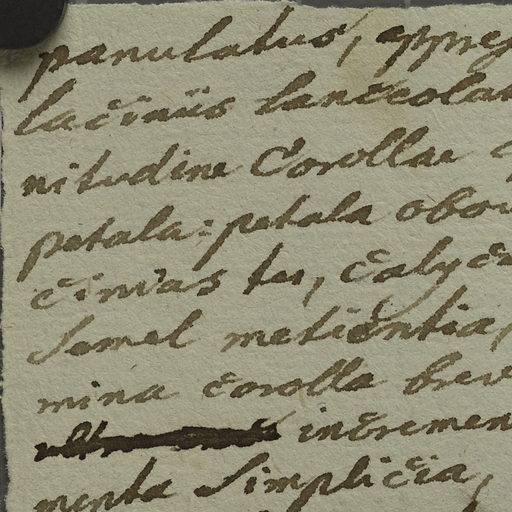 panulatus, appres
laciniis lanceolat
nitudine Corollae
petala: petala obov
cinias ter, Calyce
semel metientia,
mina corolla brev
incremen
menta Simplicia,